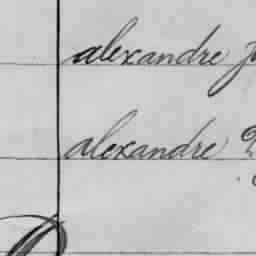 alexandre
alexandre